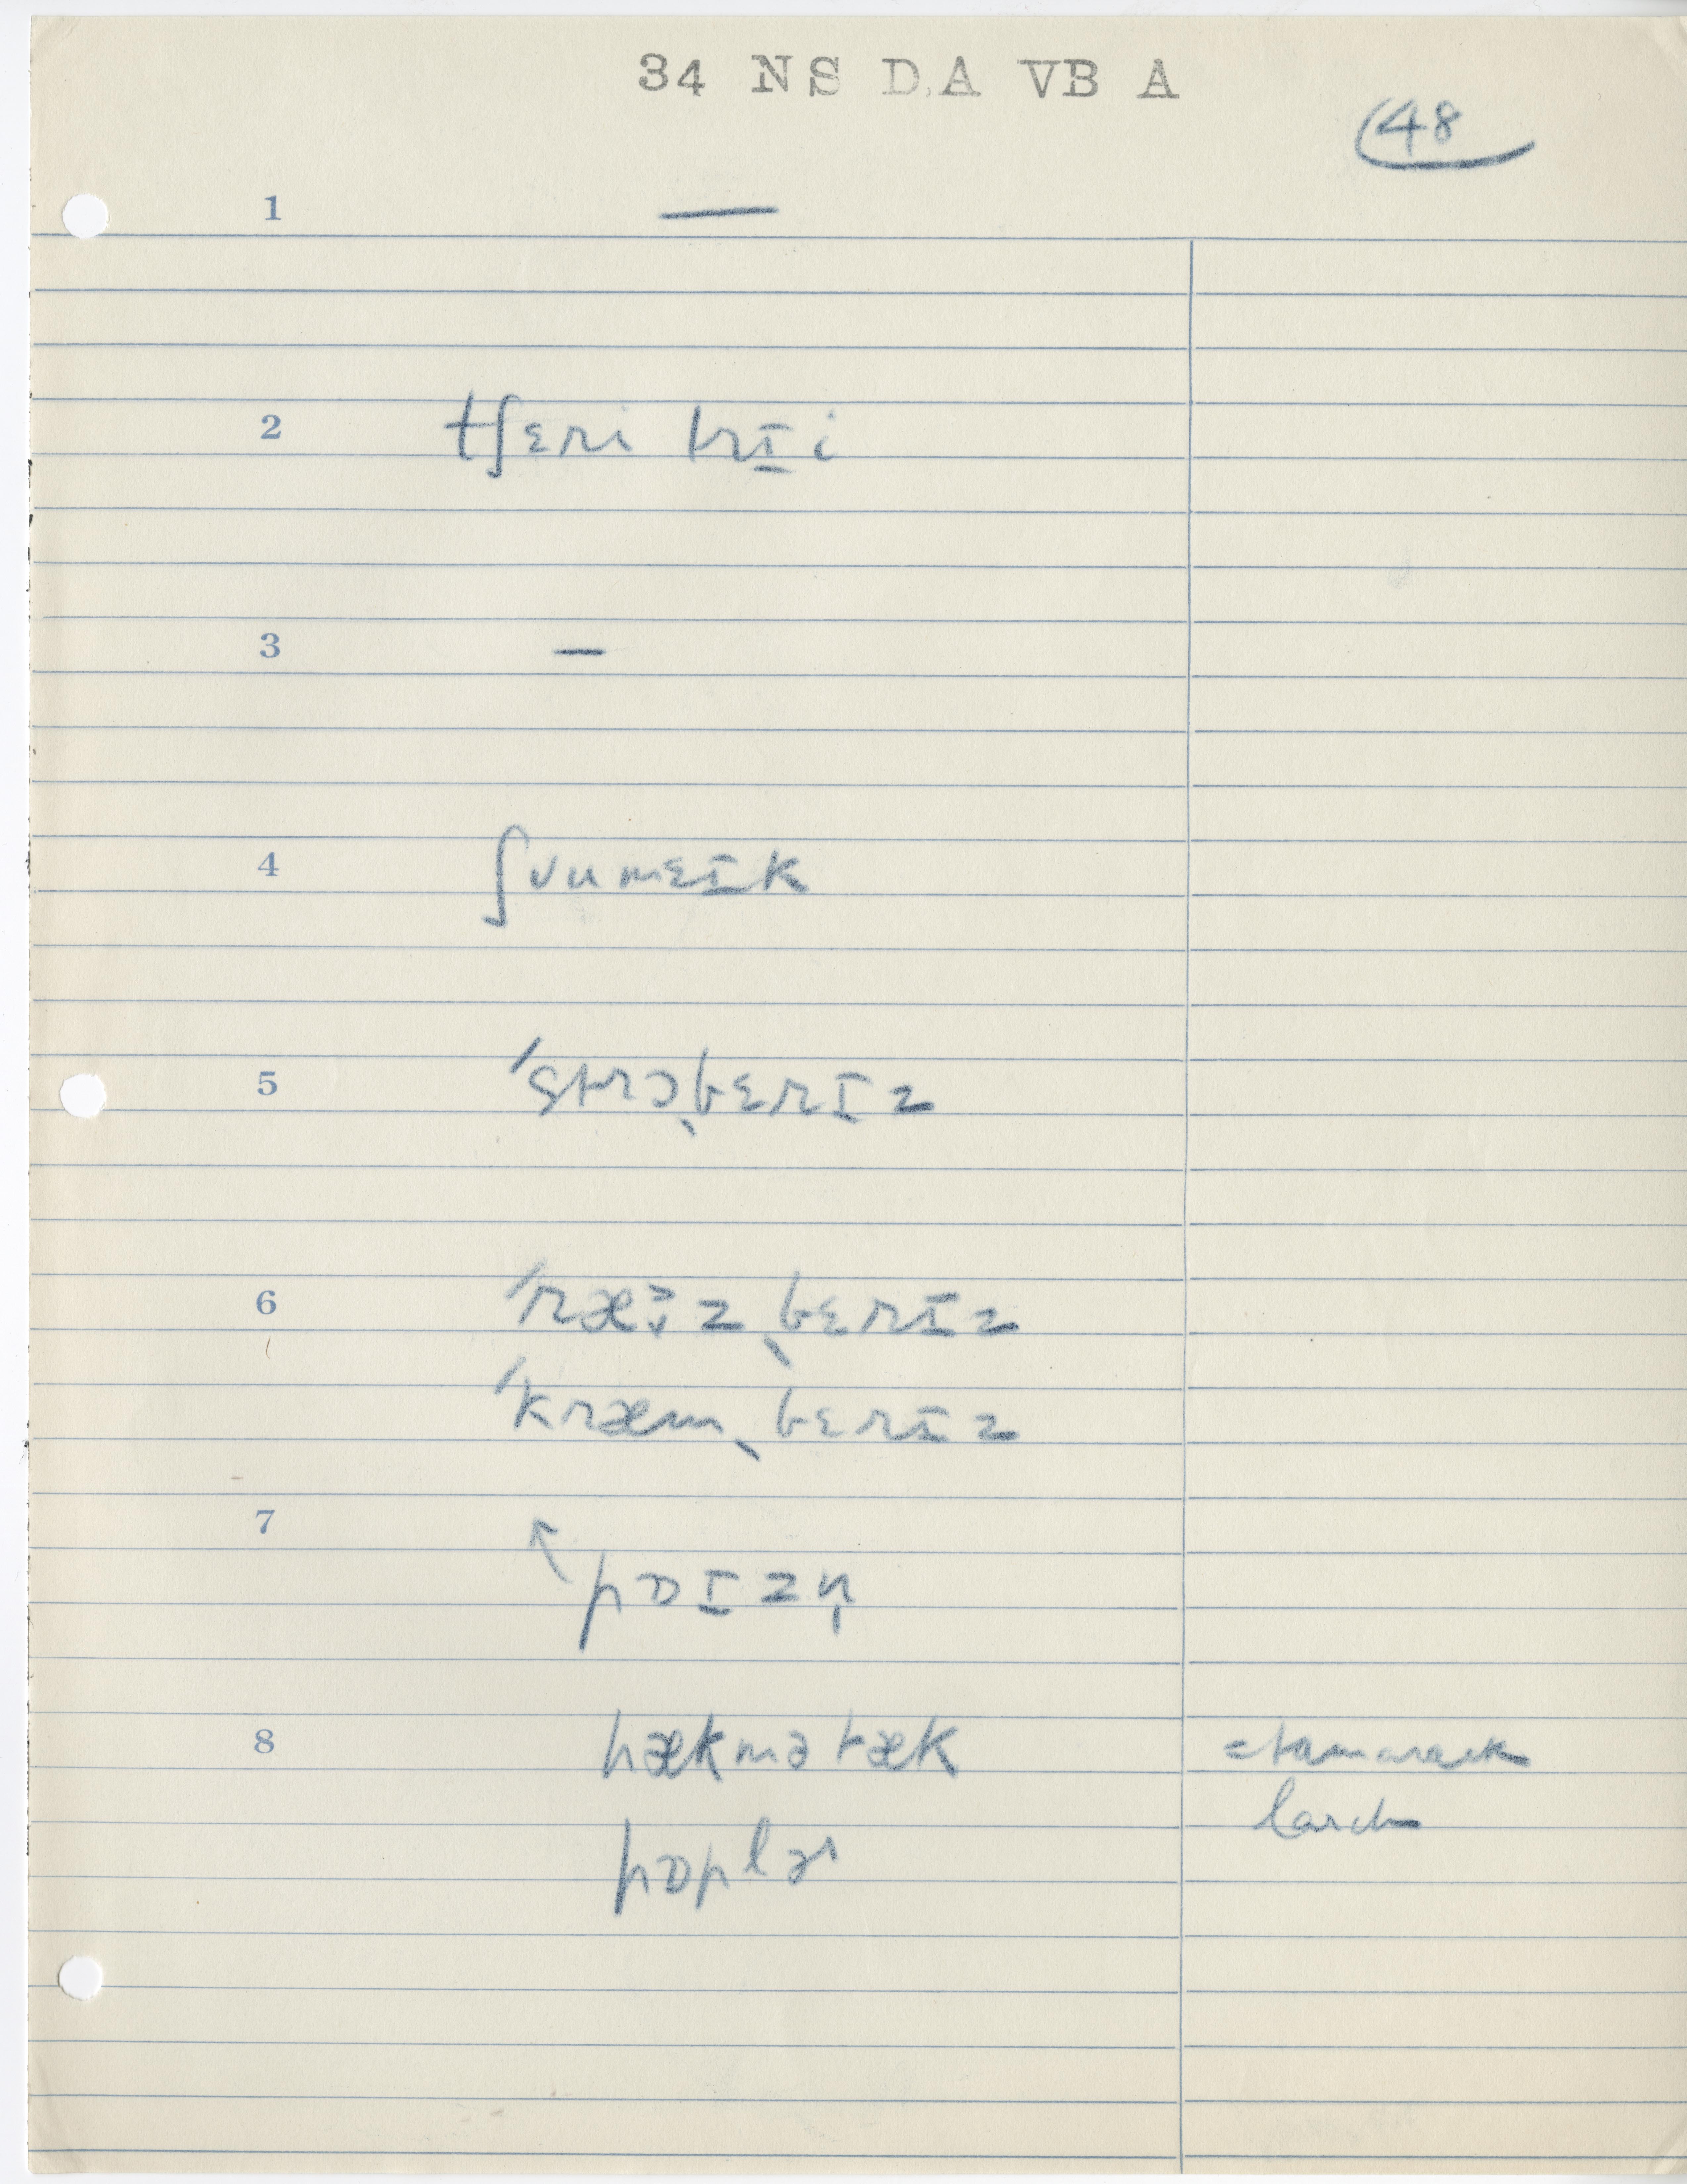 34 NS D.A VB A
48
1 —
2 tʃɛri trɪi
3 —
4 ʃʊumɛɪk
5 ˈstrɔˌbɛrɪz
6 ˈræːzˌbɛrɪz
ˈkræmˌbɛrɪz
7 ↖ pɒɪzn̩
8 hækmətæk = tamarack
larch
pɒplər